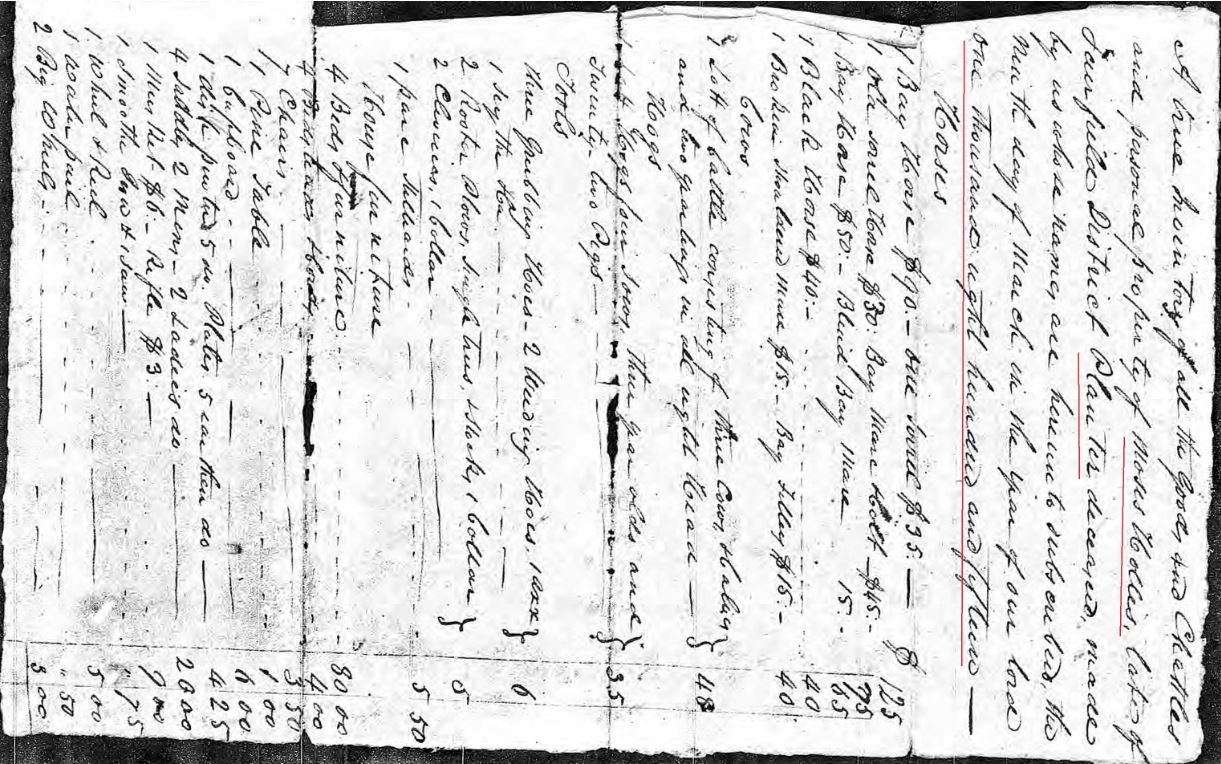 A true Inventory of all the Goods, and Chattles
and personal property of Moses Holles, late of
Fairfield District Planter deceased, made
by us whose names are hereunto subscribed, the
Ninth day of March in the year of our Lord
one Thousand eight hundred and fifteen —
Horses $
1 Bay Horse $90.— one $35 — 125
1 old sorrel Horse $30. Bay Mare Colt $45.— 75
1 Bay Mare $50.— Blind Bay Mare 15.— 65
1 Black Horse $40.— 40
1 Broken Mare $15.— Bay Filley $15.— 40
Cows
1 Lott of Cattle consisting of three Cows, &
and two yearlings in all eight Head — 48
Hogs
four Sows, three year olds and
Twenty two Pigs — 35
Tools
three Grubbing Hoes - 2 Weeding Hoes, 1 axe
1 Sey the &c — 6
2 Plows, Single trees, & Hooks, 1 Collar
2 Clevices, 1 Collar — 5
1 pare — 5 50
House furniture
4 Beds & furniture 80 00
4 Bedsteads, 4 00
7 Chairs, 3 50
1 Pine Table 1 00
1 Cupboard 6 00
1 pewter 5 do. Plates 5 earthen do — 4 25
4 2 Mens, - 2 Ladies do — 20 00
1 Musket $6 - Rifle $3.— 9 00
1 Smoothe 1 75
1 Wheel & Reel 5 00
1 wooden pail " 50
2 Big Wheels, 3 00